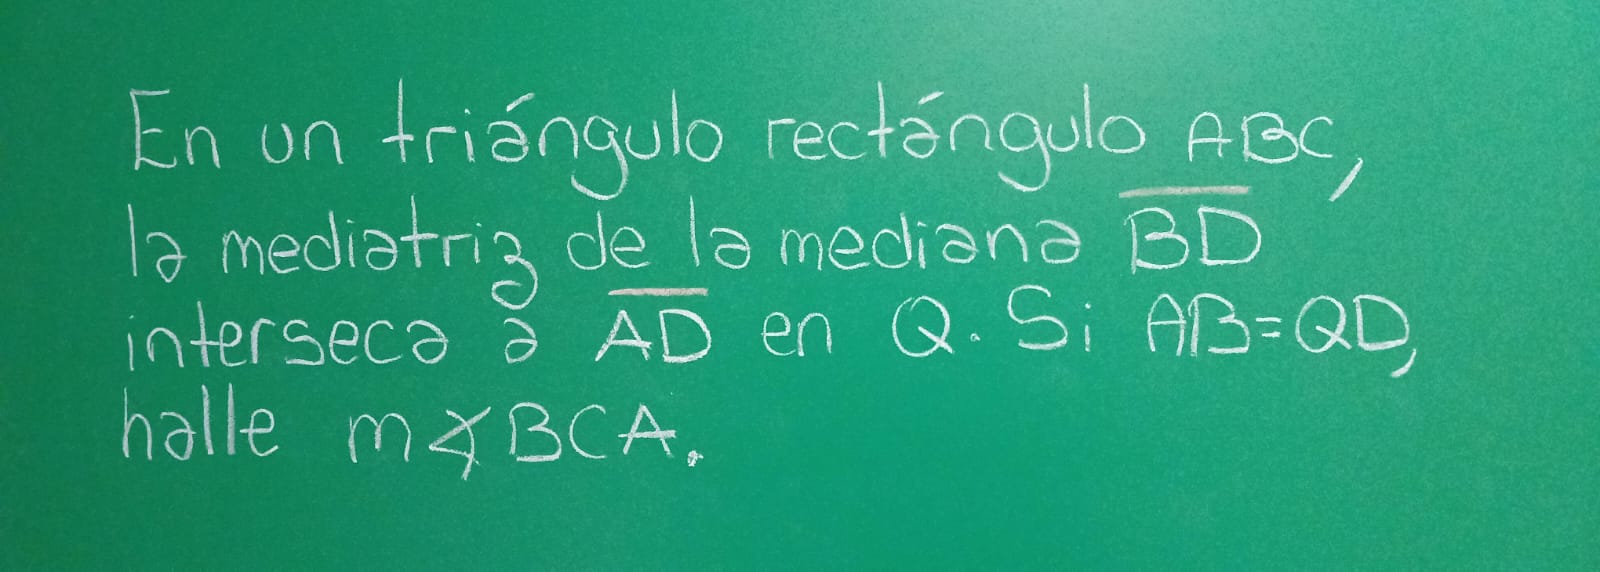 En un triángulo rectángulo ABC,
la mediatriz de la mediana B̅D̅
interseca a A̅D̅ en Q. Si AB=QD,
halle m∡BCA.